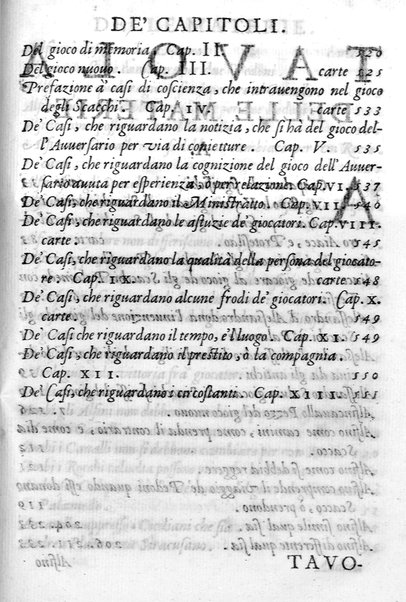 DE' CAPITOLI.
Del gioco di memoria Cap. II.
Del gioco nuouo. Cap. III. carte 525
Prefazione à casi di coscienza, che intrauengono nel gioco
degli Scacchi. Cap. IV. carte 533
De' Casi, che riguardano la notizia, che si hà del gioco del-
l'Auuersario per via di coniettere. Cap. V. 535
De' Casi, che riguardano la cognizione del gioco dell'Auuer-
sario auuta per esperienza, ò per relazione. Cap. VI. 537
De' Casi, che riguardano il Ministratto. Cap. VII. 540
De' Casi, che riguardano le astuzie de' giocatori. Cap. VIII.
carte. 545
De' Casi, che riguardano la qualità della persona del giocato-
re. Cap. IX. carte 548
De' Casi, che riguardano alcune frodi de' giocatori. Cap. X.
carte. 549
De' Casi che riguardano il tempo, e'l luogo. Cap. XI. 549
De' Casi, che riguardano il prestito, ò la compagnia.
Cap. XII. 550
De' Casi, che riguardano i circostanti. Cap. XIII. 551
TAVO-